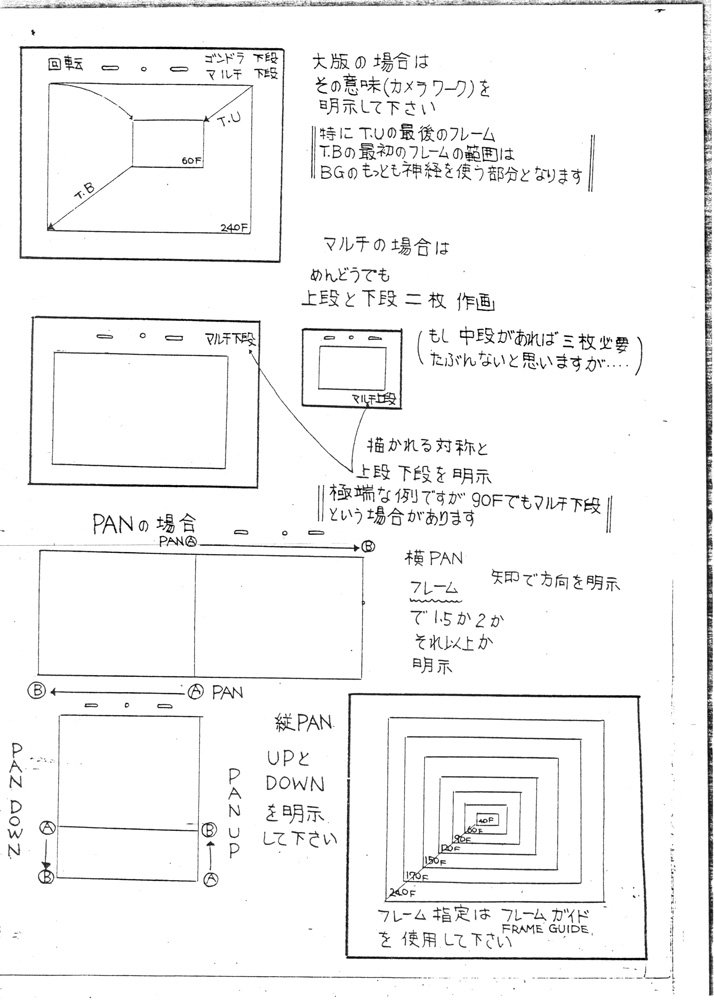 回転
ゴンドラ 下段
マルチ 下段
T.U
60F
T.B
240F
大版の場合は
その意味(カメラワーク)を
明示して下さい
特にT.Uの最後のフレーム
T.Bの最初のフレームの範囲は
BGのもっとも神経を使う部分となります
マルチの場合は
めんどうでも
上段と下段 二枚 作画
(もし 中段があれば 三枚必要
たぶんないと思いますが‥‥)
マルチ下段
マルチ上段
描かれる対称と
上段 下段を明示
極端な例ですが 90Fでもマルチ下段
という場合があります
PANの場合
PANⒶ
Ⓑ
横PAN
矢印で方向を明示
フレーム
で1.5か2か
それ以上か
明示
Ⓑ
Ⓐ PAN
縦PAN
UPと
DOWN
を明示
して下さい
PAN DOWN
Ⓐ
Ⓑ
PAN UP
Ⓑ
Ⓐ
40F
60F
90F
120F
150F
170F
240F
フレーム 指定は フレーム ガイド
FRAME GUIDE.
を 使用して下さい